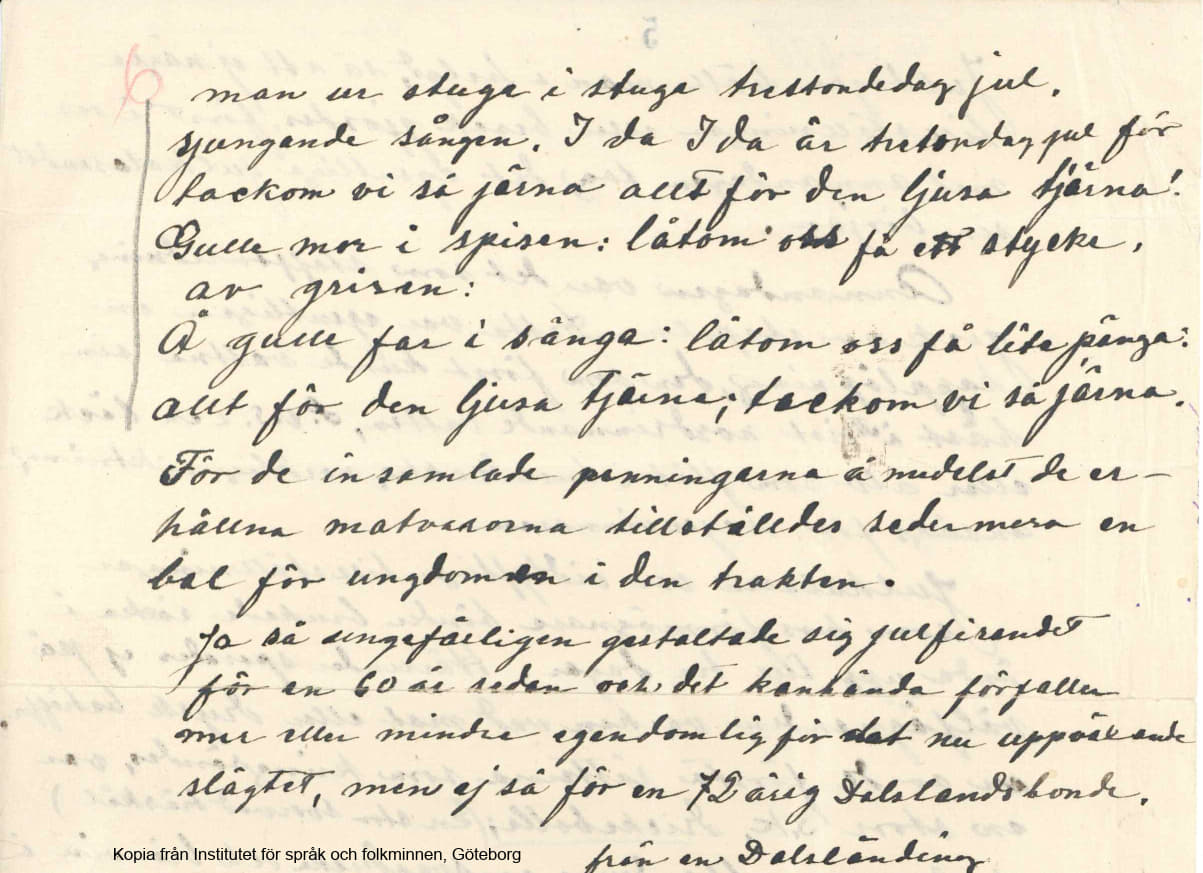 5
6
man ur stuga i stuga trettondedag jul,
sjungande sången. I da I da är tretondag jul för
tackom vi så järna allt för den ljusa tjärna!
Gulle mor i spisen: låtom oss få ett stycke,
av grisen:
Å gulle far i sänga: låtom oss få lite pänga:
allt för den ljusa tjärna; tackom vi så järna.
För de insamlade penningarna å medelst de er-
hållna matvarorna tillställdes sedermera en
bal för ungdomen i den trakten.
Ja så ungefärligen gestaltade sig julfirandet
för en 60 år sedan och det kanhända förfaller
mer eller mindre egendomlig för det nu uppväxande
slägtet, men ej så för en 72 årig Dalslandsbonde.
från en Dalslänning
Kopia från Institutet för språk och folkminnen, Göteborg